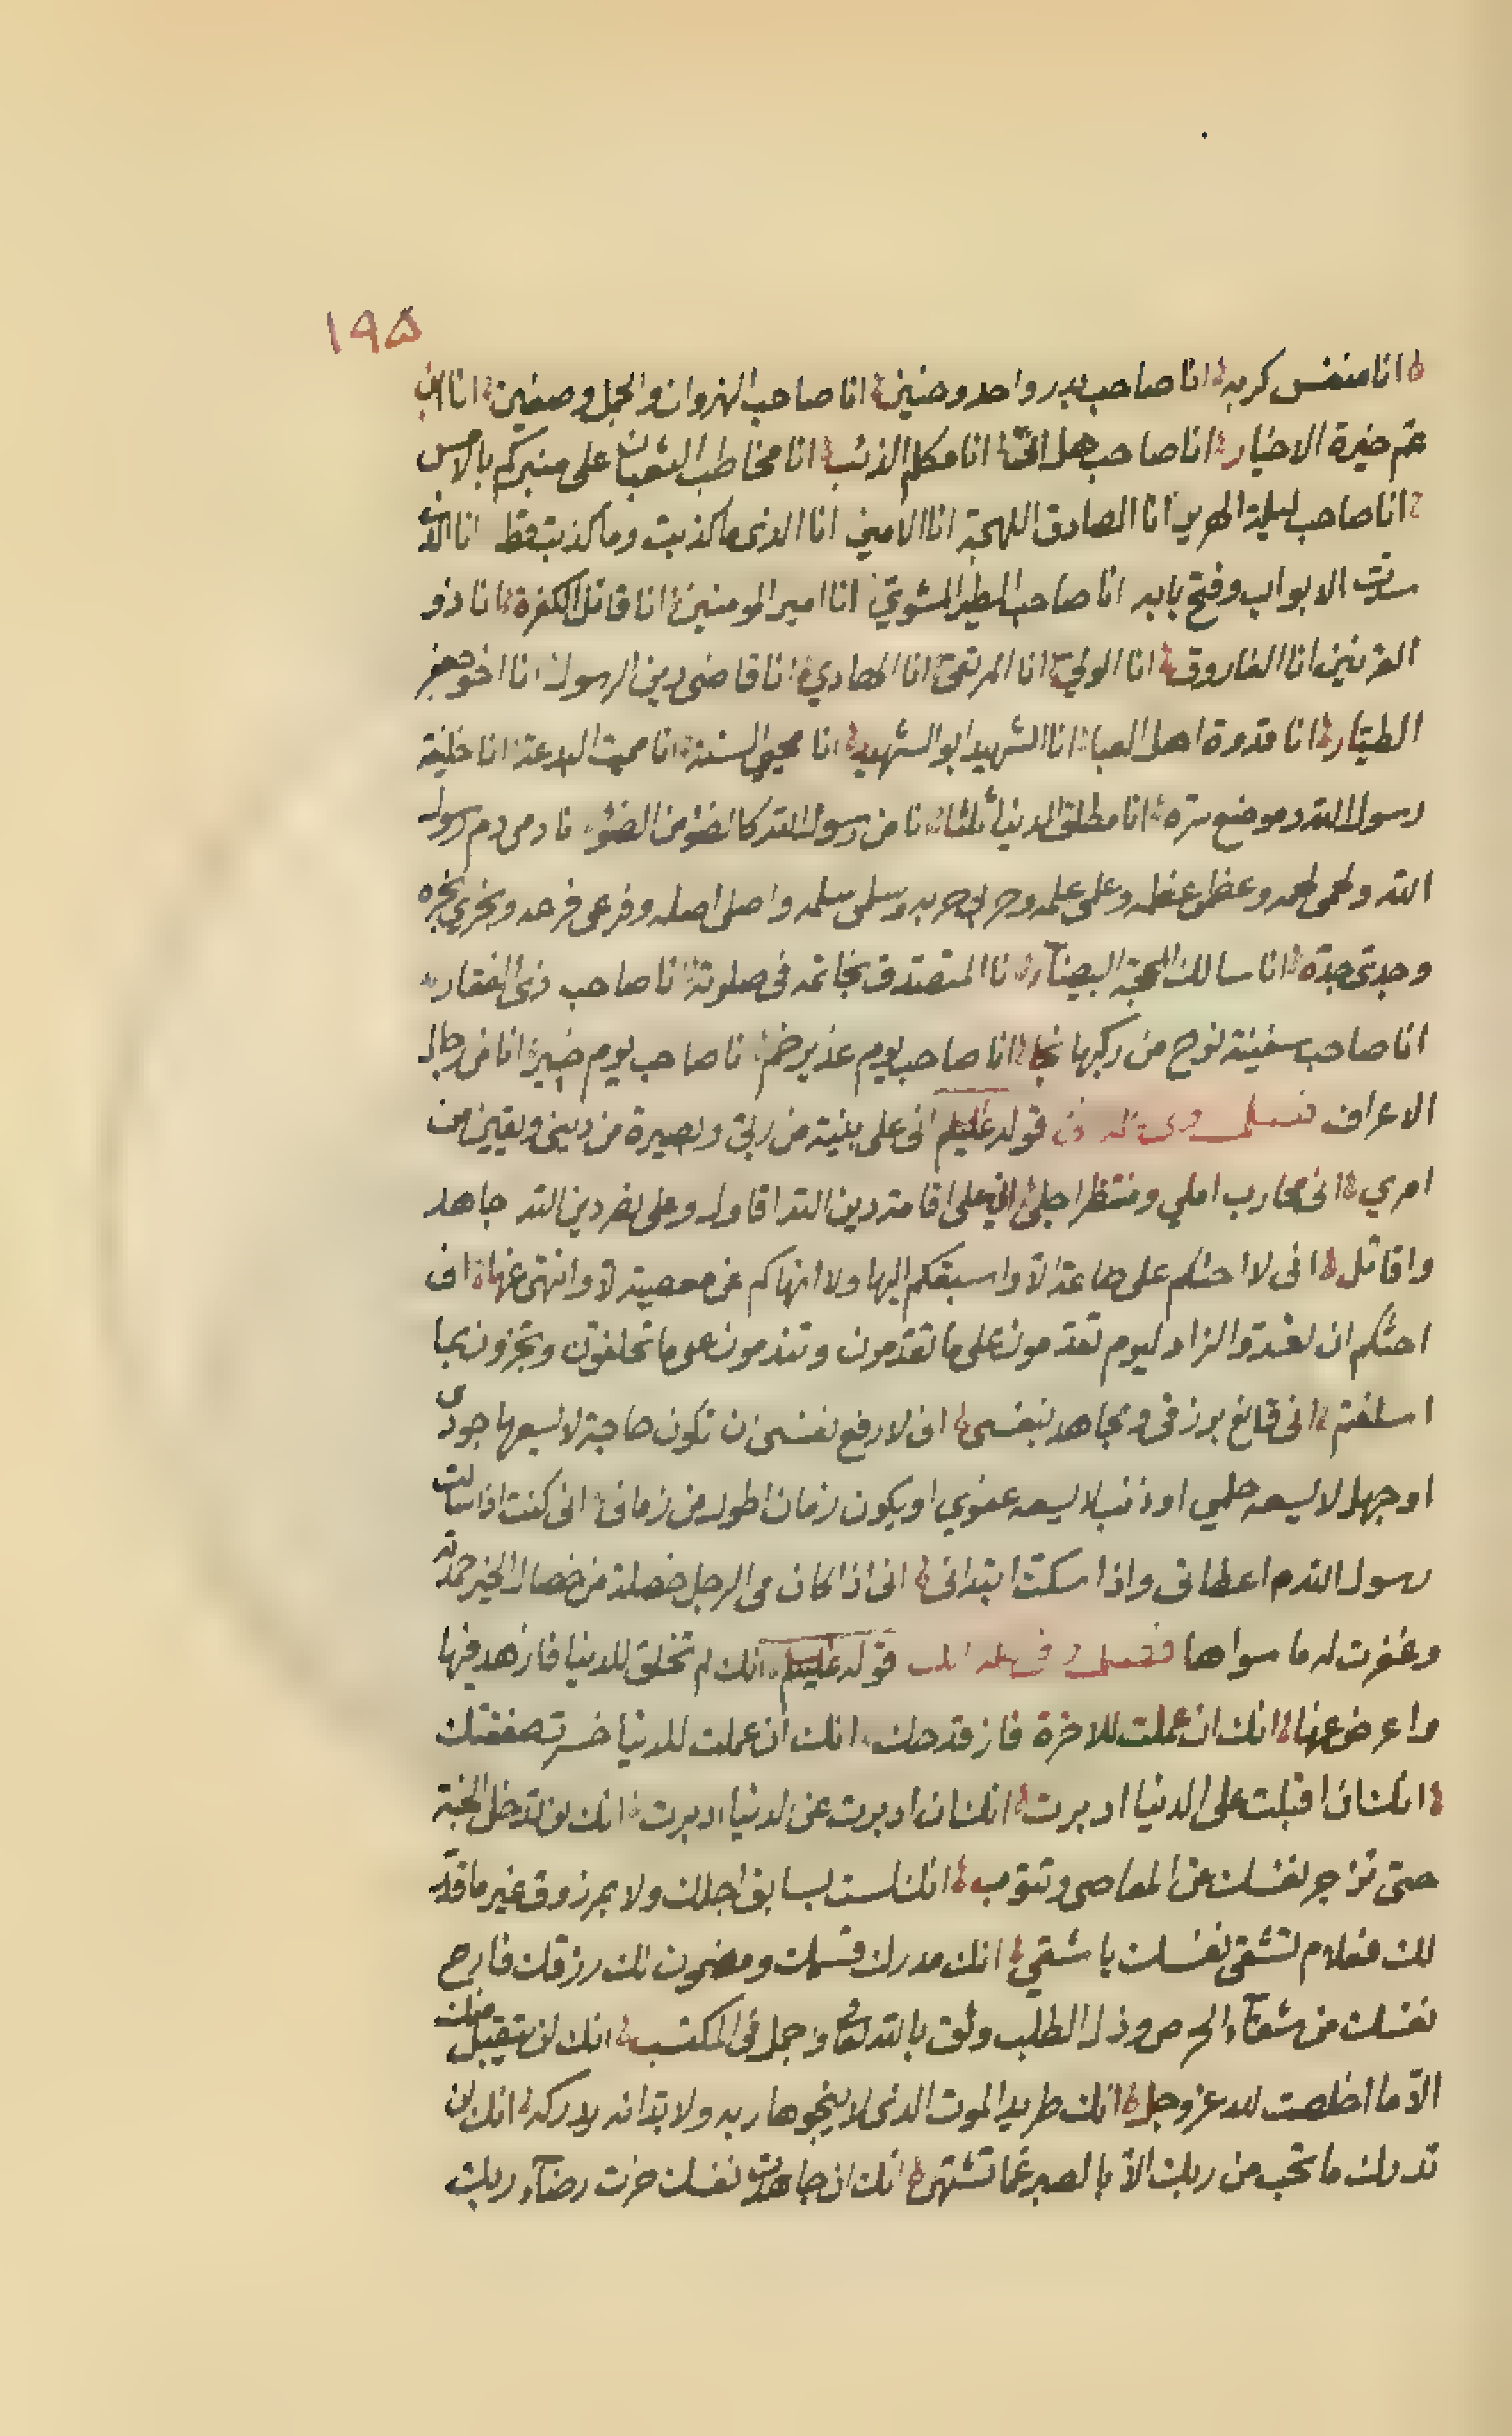 ۱۹۵
انا منفس كربه انا صاحب بدر واحد وحنين انا صاحب النهروان والجمل وصفين انا ابن
عم خيرة الاخيار انا صاحب هل اتى انا مكلم الذئب انا مخاطب الثعبان على منبركم بالامس
انا صاحب ليلة الهرير انا الصادق اللهجة انا الامين انا الذى ما كذبت وما كذبت قط انا الذى
سدت الابواب وفتح بابه انا صاحب الطير المشوي انا امير المومنين انا قاتل الكفرة انا ذو
القرنين انا الفاروق انا الولي انا المرتضى انا الهادي انا قاضى دين الرسول انا اخو جعفر
الطيار انا قدوة اهل العبا انا الشهيد ابو الشهيد انا محيى السنة انا مميت البدعة انا خليفة
رسول الله وموضع سره انا مطلق الدنيا ثلثا انا من رسول الله كالضوء من الضوء انا دمى دم رسول
الله ولحمى لحمه وعظمى عظمه وعلمى علمه وحربى حربه وسلمى سلمه واصلى اصله وفرعى فرعه وبحري بحره
وجدى جده انا سالك المحجة البيضآء انا المتصدق بخاتمه فى صلوته انا صاحب ذى الفقار
انا صاحب سفينة نوح من ركبها نجا انا صاحب يوم غدير خم انا صاحب يوم خيبر انا من رجال
الاعراف قوله عليلم انى على بينة من ربى وبصيرة من دينى ويقين من
امري انى محارب املي ومنتظر اجلى انى على اقامة دين الله اقاول وعلى نصر دين الله جاهد
واقاتل انى لا احثكم على طاعة الا واسبقكم اليها ولا انهاكم عن معصية الا وانتهى عنها انى
احثكم ان لغدوا لزاد ليوم تقدمون على ما تقدمون وتندمون على ما تخلفون وتجزون بما
اسلفتم انى قانع برزقى ومجاهد بنفسى انى لارفع نفسى ان تكون حاجة لا يسعها جودى
او جهل لا يسعه حلمي او ذنب لا يسعه عفوي او يكون زمان اطول من زمانى انى كنت اذا سالت
رسول الله م اعطانى واذا سكت ابتدانى انى اذا كان فى الرجل خصلة من خصال الخير حمدته
وغفرت له ما سواها قوله عليلم انك لم تخلق للدنيا فازهد فيها
واعرض عنها انك ان عملت للاخرة فاز قدحك انك ان عملت للدنيا خسرت صفقتك
انك ان اقبلت على الدنيا ادبرت انك ان ادبرت عن الدنيا ادبرت انك لن تدخل الجنة
حتى تزجر نفسك عن المعاصى وتتوب انك لست بسابق اجلك ولا بمرزوق غير ما قدر
لك فعلام تشقى نفسك يا شقي انك مدرك قسمك ومضمون لك رزقك فارح
نفسك من شقآء الحرص وذل الطلب وثق بالله تعالى واجمل فى المكتسب انك لن يتقبل منك
الا ما اخلصت لله عز وجل انك طريد الموت الذى لا ينجو هاربه ولا بد انه يدركه انك لن
تدرك ما تحب من ربك الا بالصبر عما تشتهى انك ان جاهدت نفسك حزت رضآء ربك